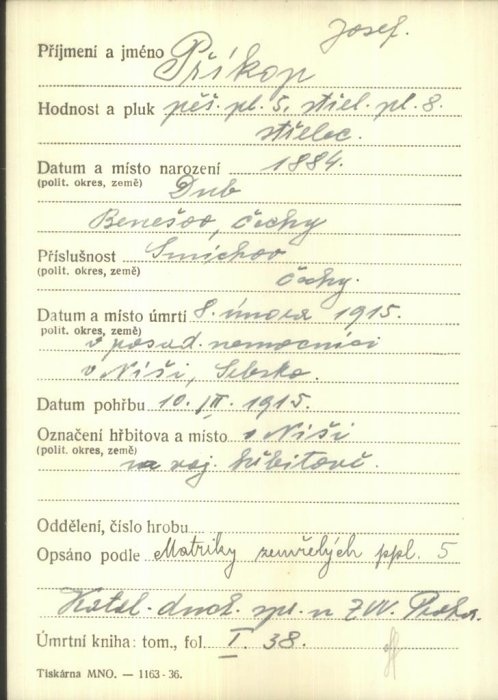 Josef.
Příjmení a jméno Příkop
Hodnost a pluk pěš. pl. 5, střel. pl. 8.
střelec.
Datum a místo narození 1884.
(polit. okres, země) Dub
Benešov, Čechy
Příslušnost Smíchov
(polit. okres, země) Čechy.
Datum a místo úmrtí 8. února 1915.
polit. okres, země)
v posád. nemocnici
v Niši, Srbsko.
Datum pohřbu 10. III. 1915.
Označení hřbitova a místo v Niši
(polit. okres, země)
na voj. hřbitově.
Oddělení, číslo hrobu
Opsáno podle Matriky zemřelých ppl. 5
Katol. duch. spr. u ZVV. Praha.
Úmrtní kniha: tom., fol. I. 38.
Tiskárna MNO. — 1163-36.